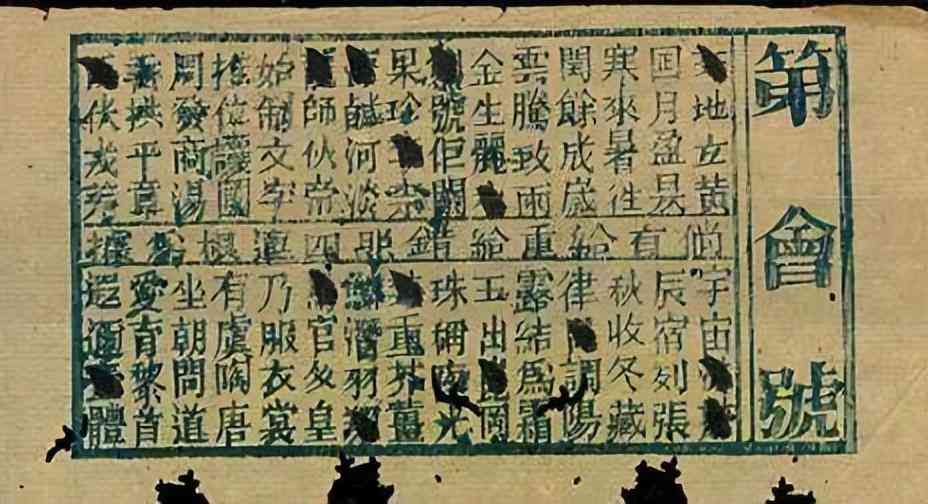 第會號
地玄黃
月盈昃
寒來暑往
閏餘成歲
雲騰致雨
金生麗
號佢闕
果珍柰
鹹河淡
師伙帝
始制文字
推位讓國
周發商湯
拱平章
伏戎羌
倘有給重給錯照四準根為據
宇宙
辰宿列張
秋收冬藏
律調陽
露結為霜
玉出岡
珠稱夜光
重芥薑
鱗潛羽翔
官人皇
乃服衣裳
有虞陶唐
坐朝問道
愛育黎首
遐邇體